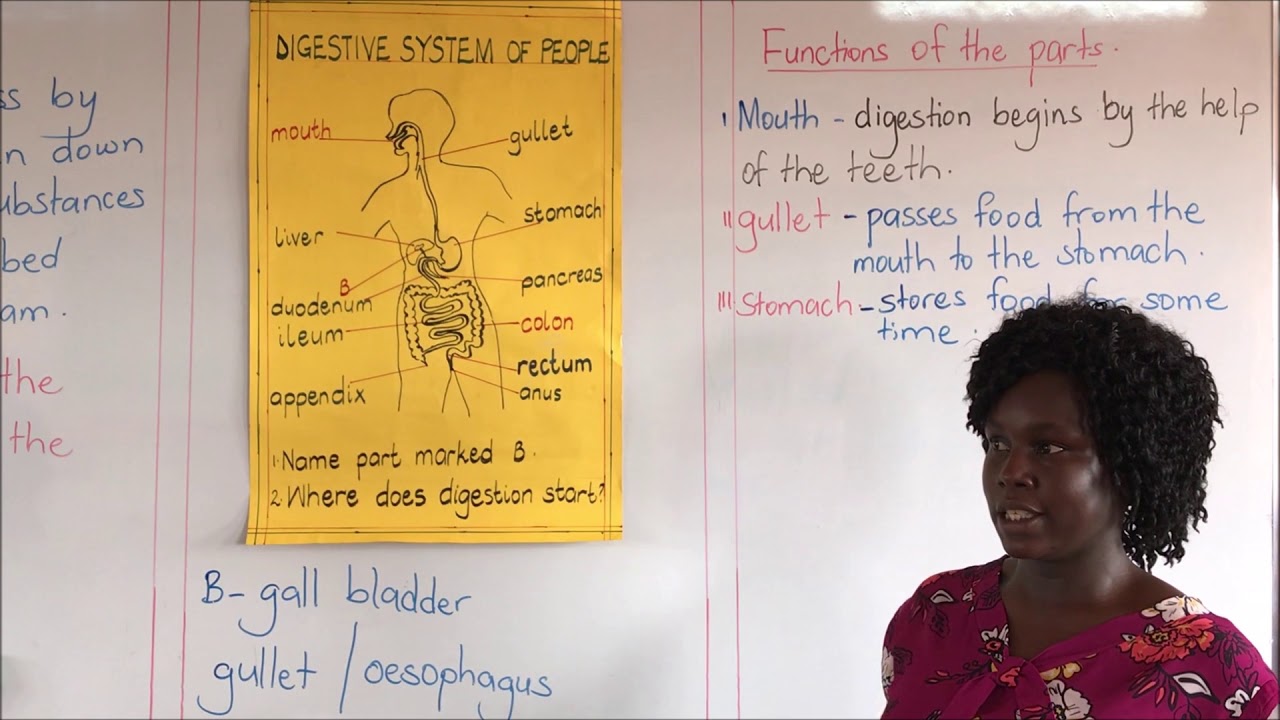 ss by
n down
ubstances
bed
am.
the
the
DIGESTIVE SYSTEM OF PEOPLE
mouth
gullet
liver
stomach
B
pancreas
duodenum
ileum
colon
rectum
appendix
anus
1. Name part marked B.
2. Where does digestion start?
B- gall bladder
gullet / oesophagus
Functions of the parts.
i Mouth - digestion begins by the help
of the teeth.
ii gullet - passes food from the
mouth to the stomach.
iii Stomach - stores food for some
time.